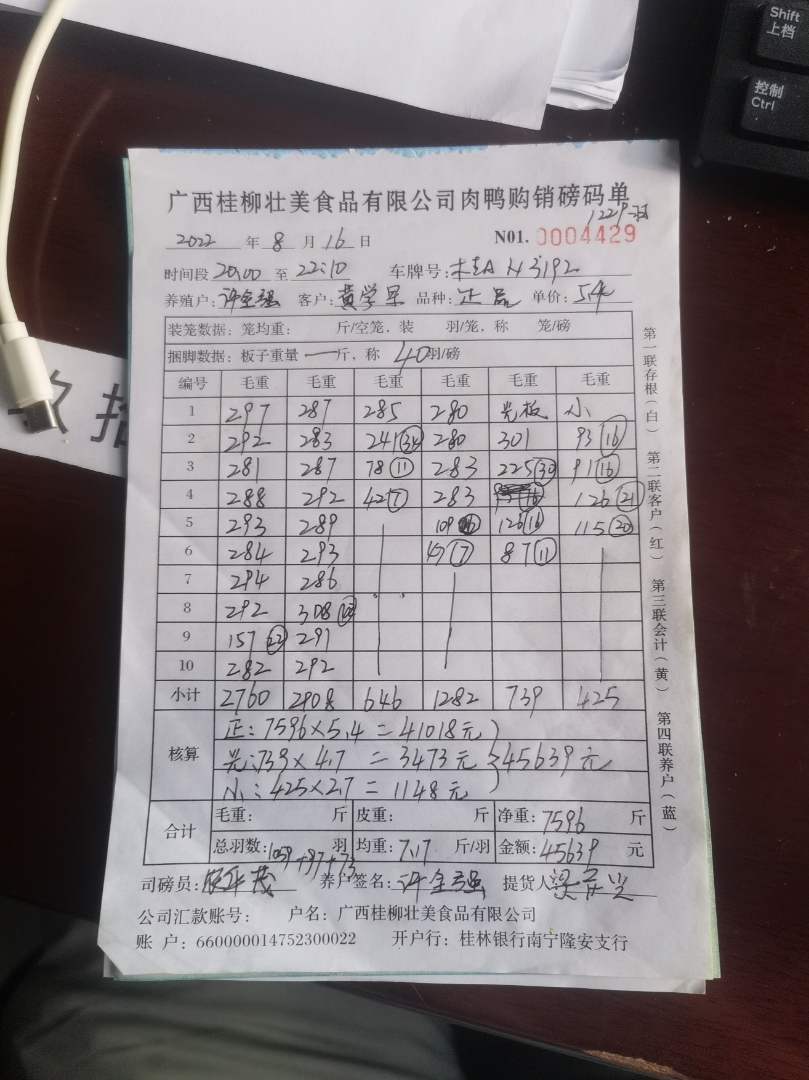 Shift
上档
控制
Ctrl
广西桂柳壮美食品有限公司肉鸭购销磅码单
2022 年 8 月 16 日 N01. 0004429
时间段 20:00 至 22:10 车牌号: 桂A N3192
养殖户: 许全强 客户: 黄学军 品种: 正品 单价: 5.4
装笼数据: 笼均重: 斤/空笼, 装 羽/笼, 称 笼/磅
捆脚数据: 板子重量 一 斤, 称 40 羽/磅
编号 毛重 毛重 毛重 毛重 毛重 毛重
1 297 287 285 280 光板 小
2 292 283 241 34 280 301 93 16
3 281 287 78 11 283 225 30 91 16
4 288 292 42 7 283 126 21
5 293 289 109 126 16 115 20
6 284 293 47 7 87 11
7 294 286
8 292 308
9 157 22 291
10 282 292
小计 2760 2908 646 1282 739 425
核算
正: 7596×5.4 = 41018元
光: 739×4.7 = 3473元 45639元
小: 425×2.7 = 1148元
合计
毛重: 斤 皮重: 斤 净重: 7596 斤
总羽数: 1059+87+73 羽 均重: 7.17 斤/羽 金额: 45639 元
司磅员: 养户签名: 许全强 提货人
公司汇款账号: 户名: 广西桂柳壮美食品有限公司
账 户: 660000014752300022 开户行: 桂林银行南宁隆安支行
第一联存根(白) 第二联客户(红) 第三联会计(黄) 第四联养户(蓝)